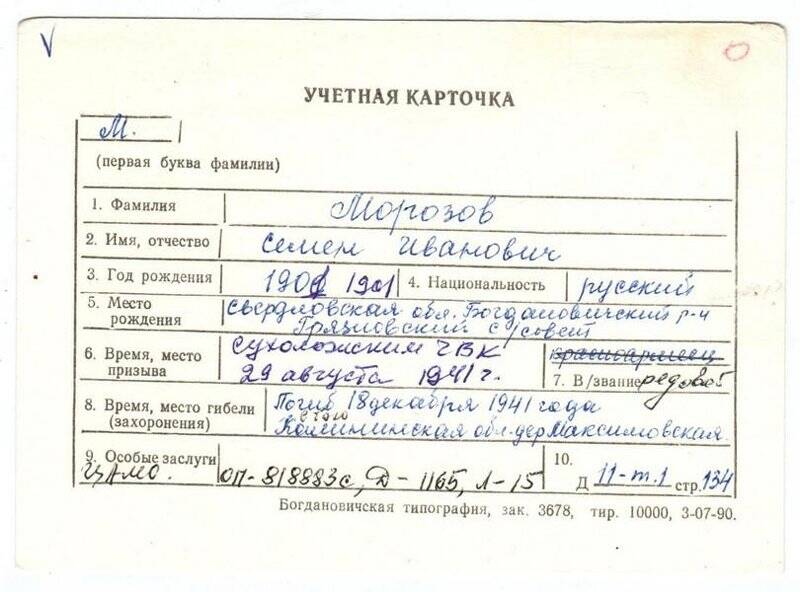 V
О
УЧЕТНАЯ КАРТОЧКА
М.
(первая буква фамилии)
1. Фамилия Морозов
2. Имя, отчество Семен Иванович
3. Год рождения 1901 1901 4. Национальность русский
5. Место рождения Свердловская обл. Богдановичский р-н
Грязновский с/совет
6. Время, место призыва Сухоложским ГВК красноармеец
29 августа 1941 г. 7. В/звание рядовой
8. Время, место гибели (захоронения) Погиб 18 декабря 1941 года
Калининская обл. дер Максимовская.
9. Особые заслуги 10.
ЦАМО. оп-818883с, Д-1165, Л-15 Д 11-т.1 стр. 134
Богдановичская типография, зак. 3678, тир. 10000, 3-07-90.